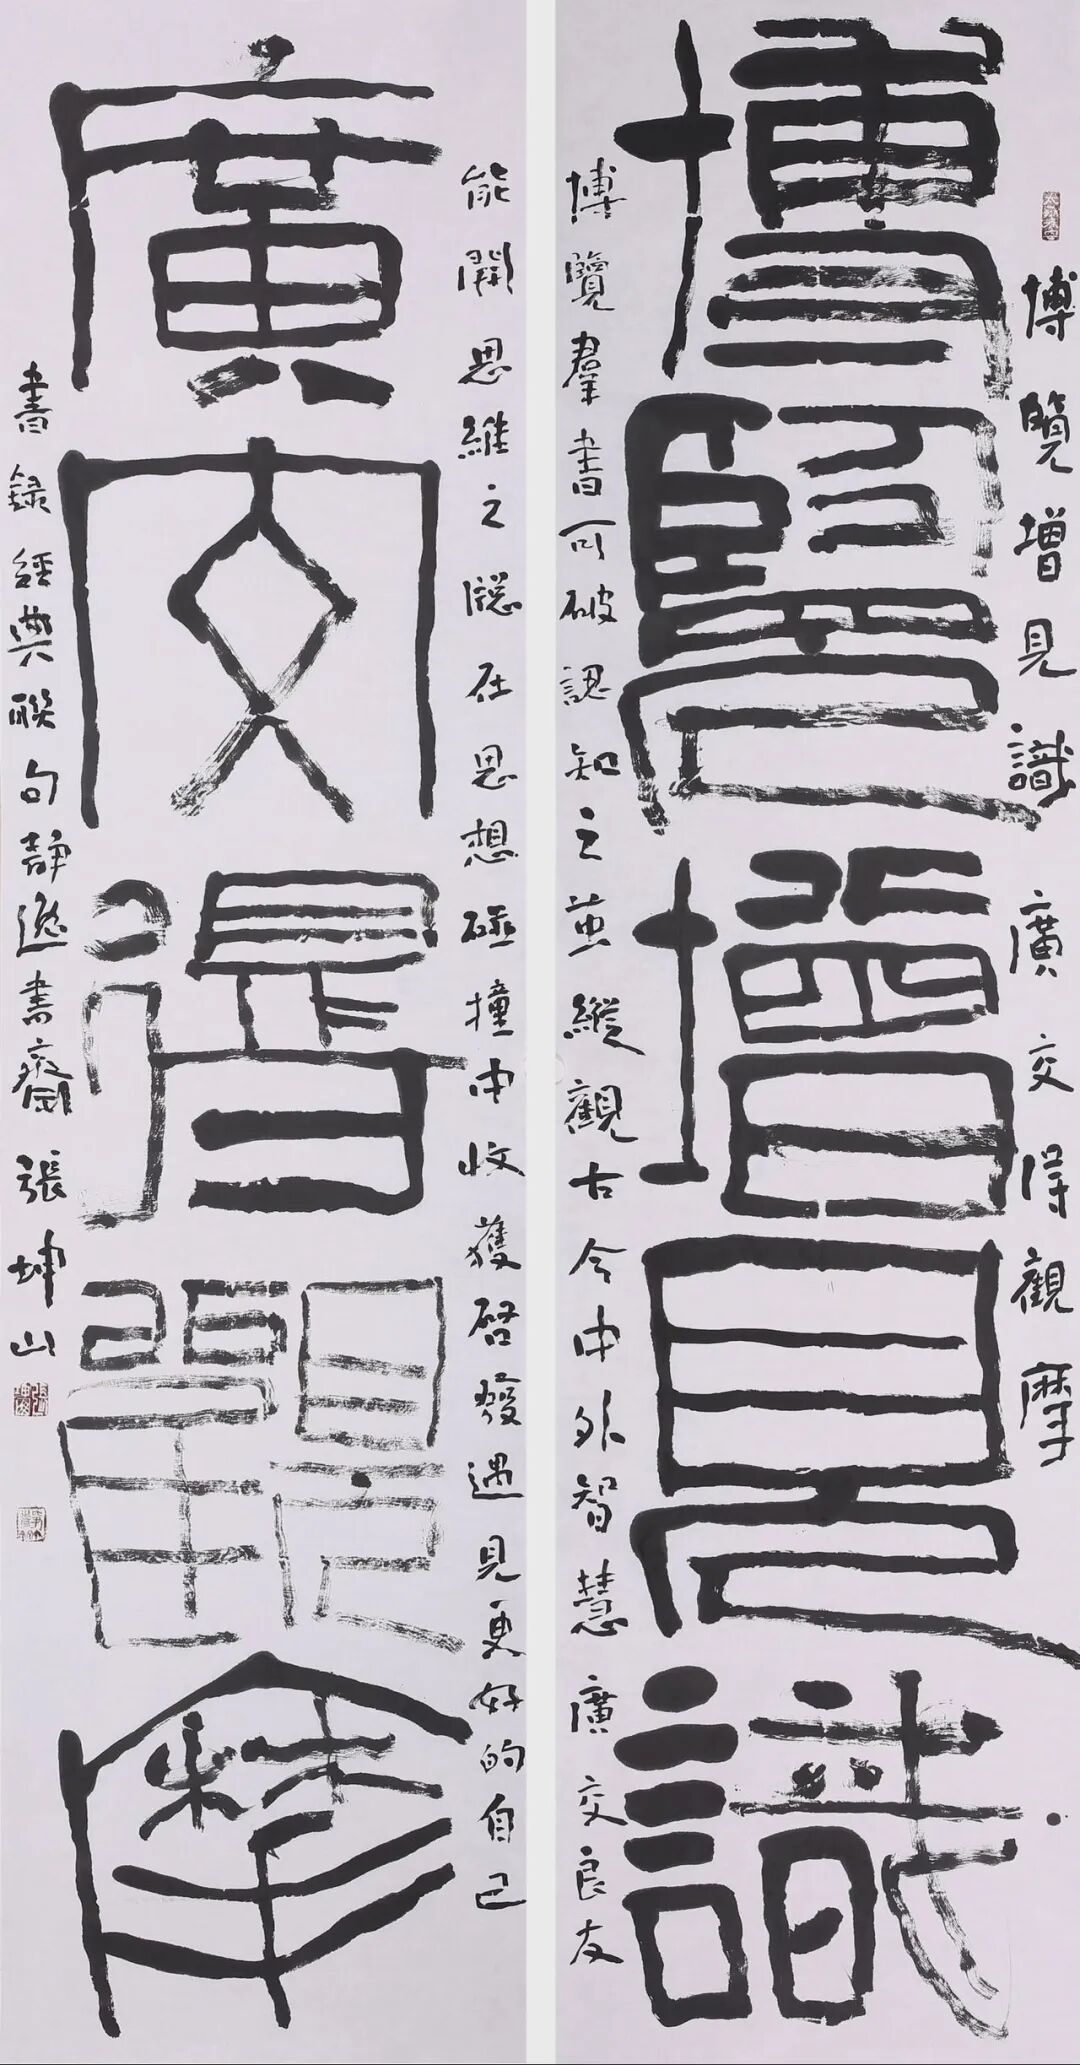 博覽增見識廣交得觀摩
博覽增見識
博覽羣書可破認知之茧縱觀古今中外智慧廣交良友
能開思維之牕在思想碰撞中收獲啓發遇見更好的自己
廣交得觀摩
書録經典聯句靜書齋張坤山